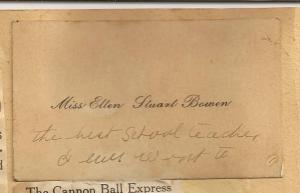 Miss Ellen Stuart Bowen
the best School teacher
I ever went to
The Cannon Ball Express